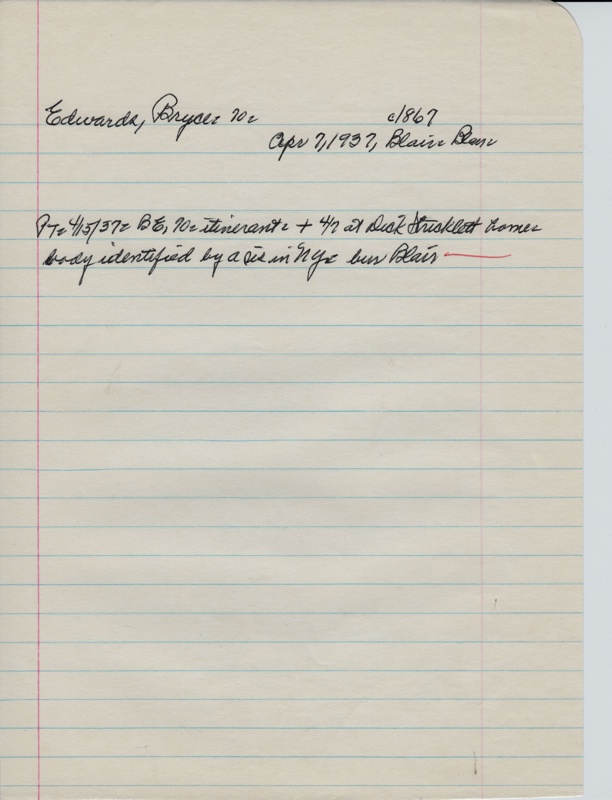 Edwards, Bryce 70 c1867
Apr 7, 1937, Blair Blair
PT 4/15/37 BE, 70 itinerant + 4/7 at Dick Stricklett home
body identified by a sis in NY bur Blair